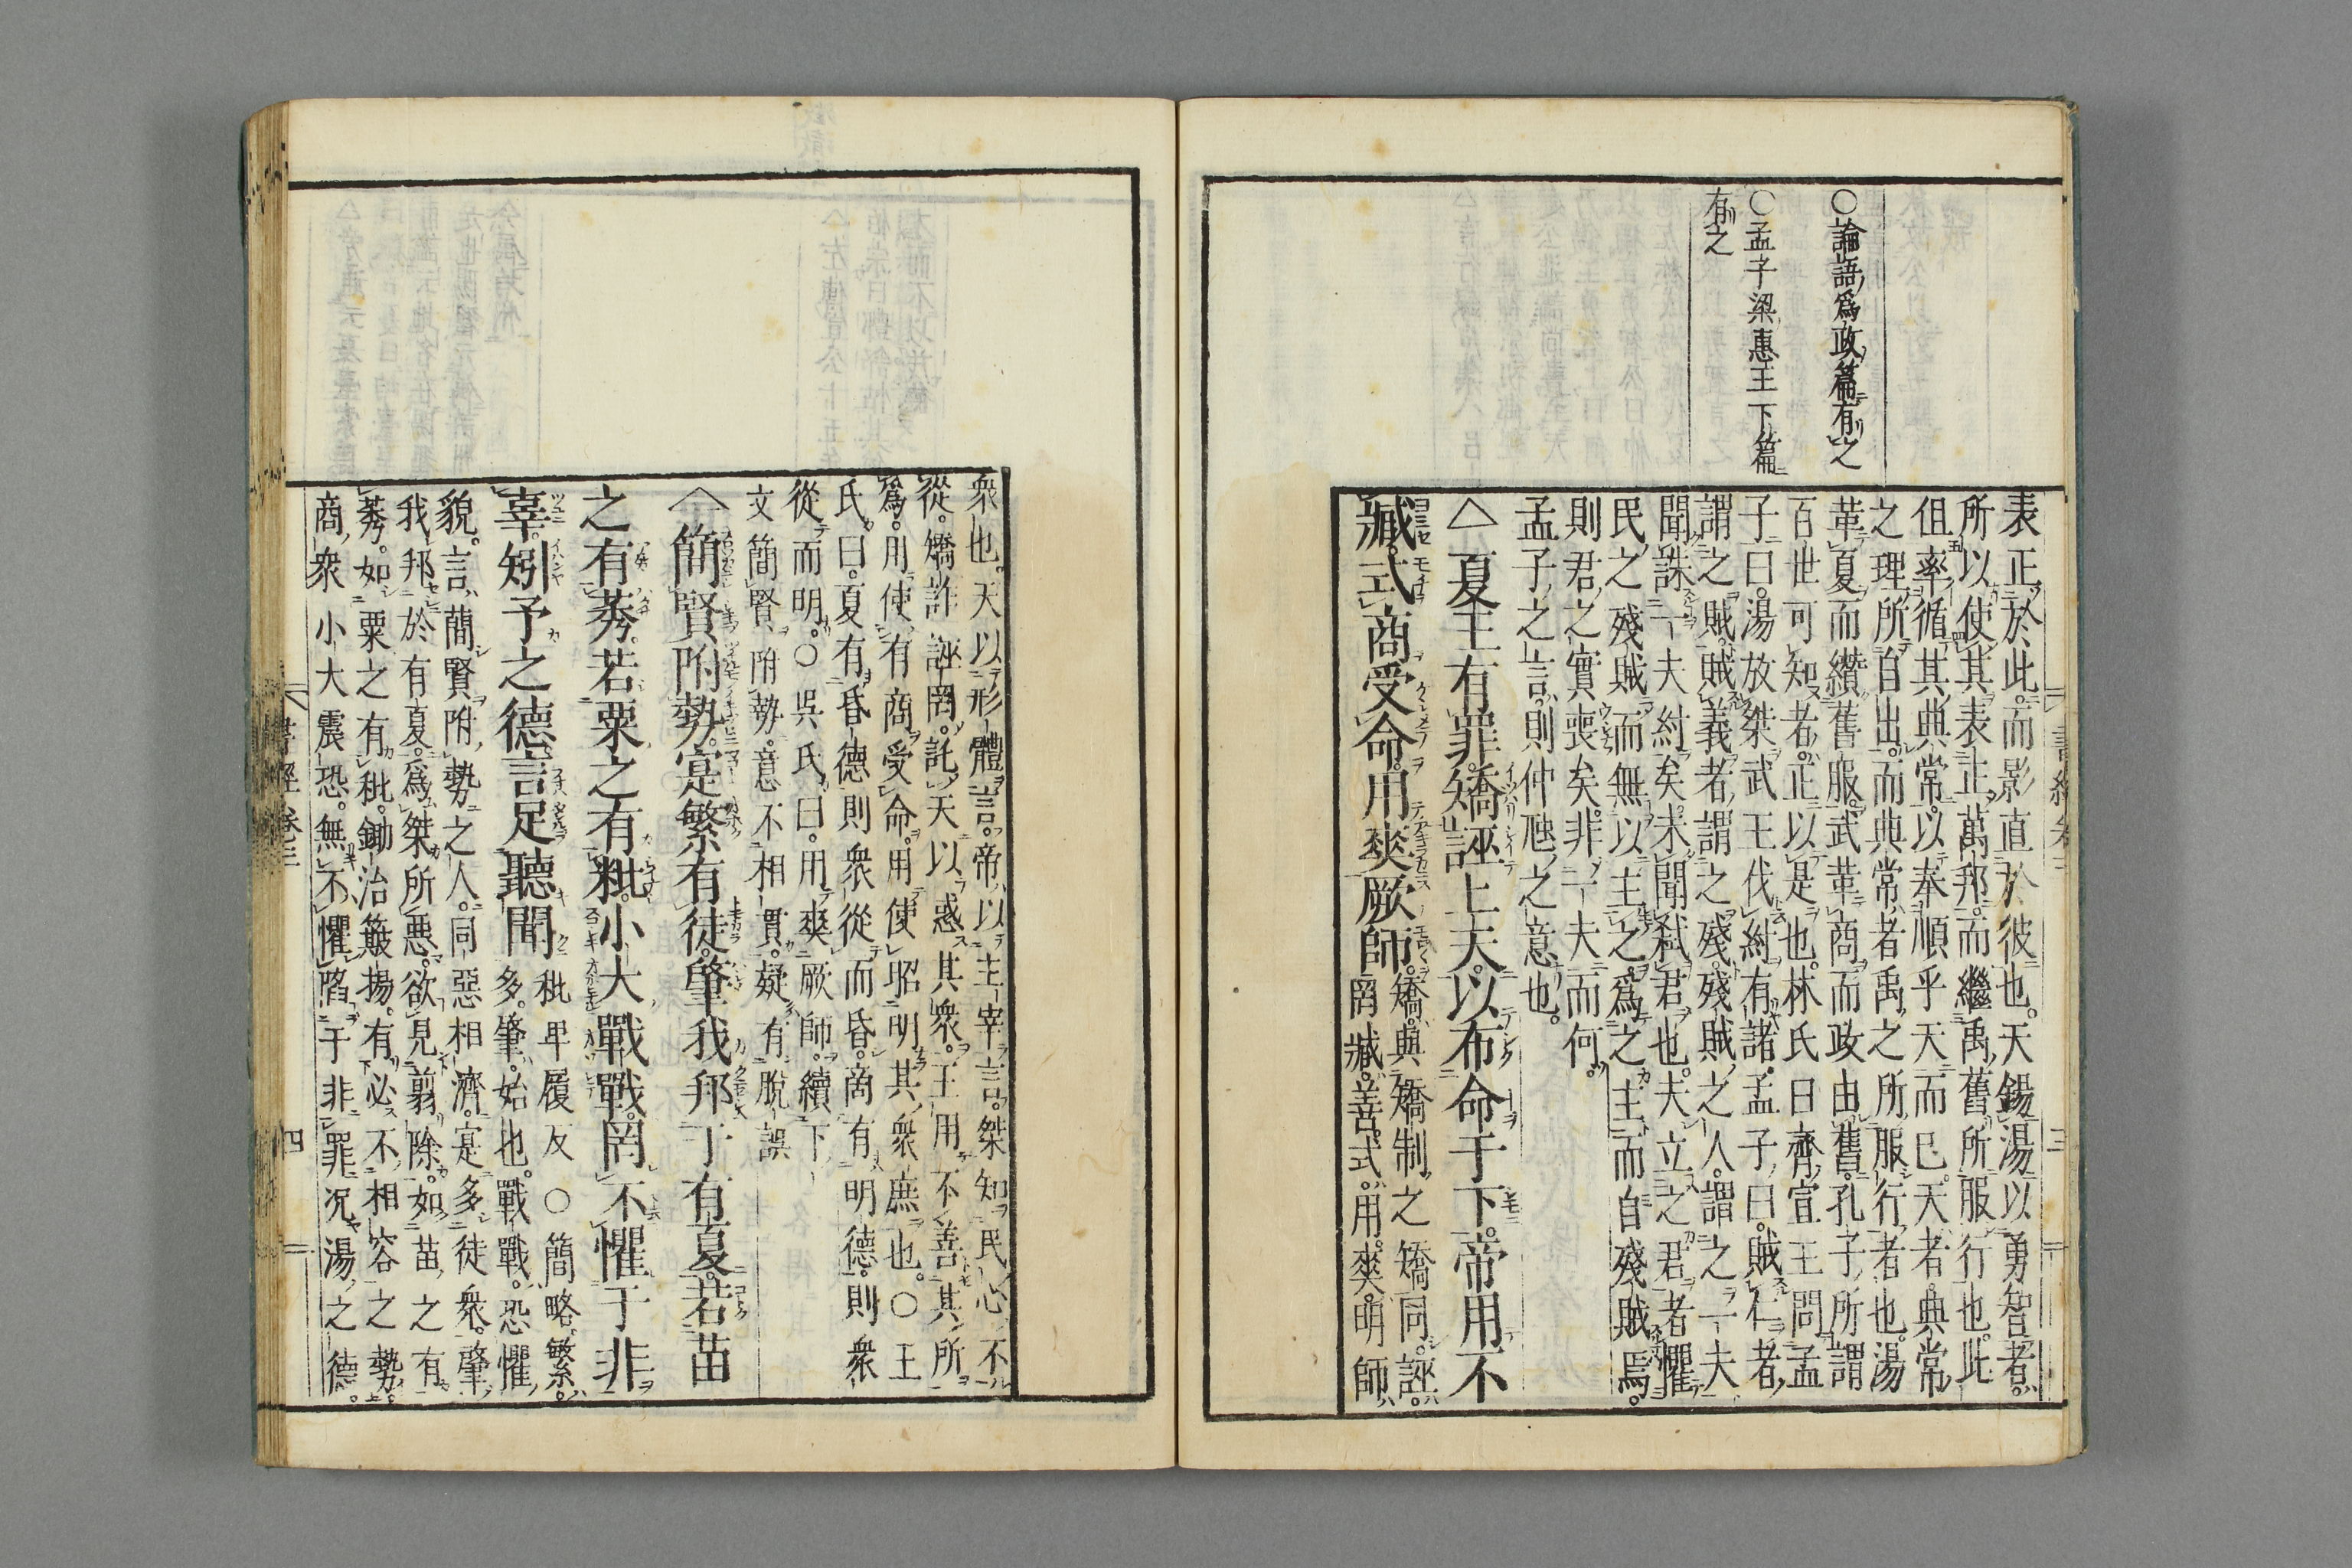 ○論語爲政篇有之
○孟子梁惠王下篇
有之
表正於此而影直於彼也天錫湯以勇智者
所以使其表正萬邦而繼禹舊所服行也此
但率循其典常以奉順乎天而已天者典常
之理所自出而典常者禹之所服行者也湯
革夏而纘舊服武革商而政由舊孔子所謂
百世可知者正以是也林氏曰齊宣王問孟
子曰湯放桀武王伐紂有諸孟子曰賊仁者
謂之賊賊義者謂之殘殘賊之人謂之一夫
聞誅一夫紂矣未聞弑君也夫立之君者懼
民之殘賊而無以主之爲之主而自殘賊焉
則君之實喪矣非一夫而何
孟子之言則仲虺之意也
△夏王有罪矯誣上天以布命于下帝用不
臧式商受命用爽厥師矯與矯制之矯同誣
罔臧善式用爽明師
衆也天以形體言帝以主宰言桀知民心不
從矯詐誣罔託天以惑其衆王用不善其所
爲用使有商受命用使昭明其衆庶也○王
氏曰夏有昏德則衆從而昏商有明德則衆
從而明○吳氏曰用爽厥師續下
文簡賢附勢意不相貫疑有脫誤
△簡賢附勢寔繁有徒肇我邦于有夏若苗
之有莠若粟之有秕小大戰戰罔不懼于非
辜矧予之德言足聽聞秕卑履反○簡略繁
多肇始也戰戰恐懼
貌言簡賢附勢之人同惡相濟寔多徒衆肇
我邦於有夏爲桀所惡欲見翦除如苗之有
莠如粟之有秕鋤治簸揚有必不相容之勢
商衆小大震恐無不懼陷于非罪况湯之德
書經卷三
四